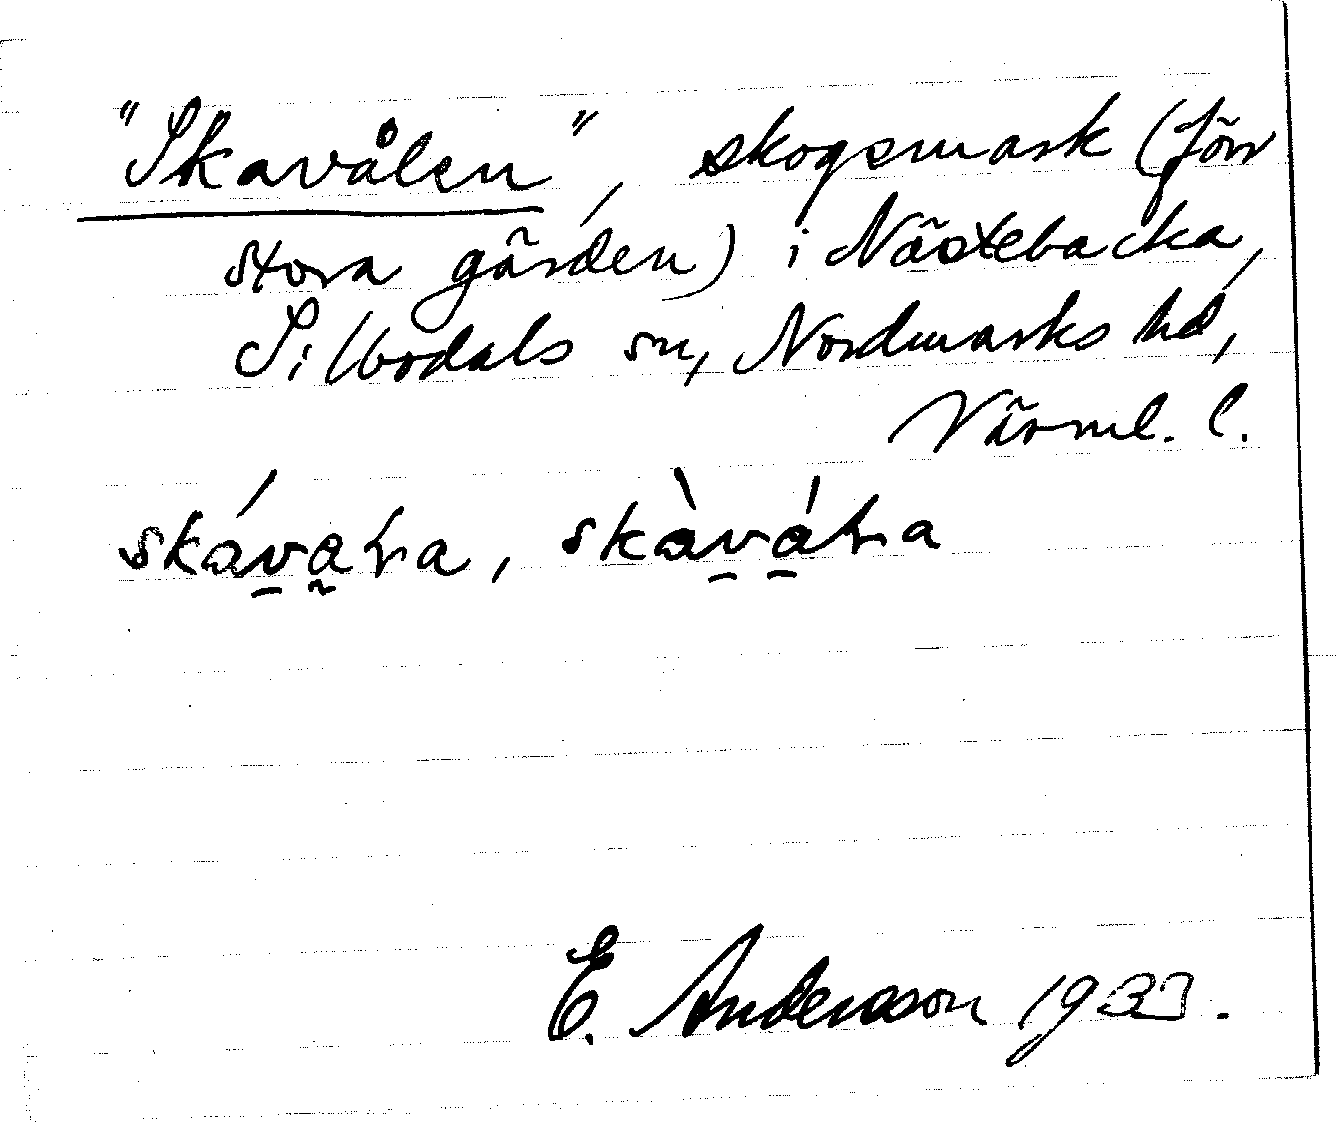 "Skavålen", skogsmark (förr
stora gärden) i Nästebacka,
Silbodals sn, Nordmarks hd,
Värml. l.
E. Andersson 1933.